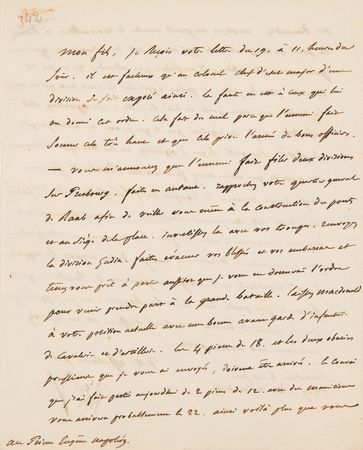 342
Mon fils, je reçois votre lettre du 19. à 11. heures du
soir. il est facheux qu'un colonel chef d'etat major d'une
division se soit exposé ainsi. la faute en est à ceux qui lui
ont donné cet ordre. cela fait du mal parce que l'ennemi fait
sonner cela bien haut et que cela prive l'armée de bons officiers.
— vous m'annoncez que l'ennemi fait filer deux divisions
sur Presbourg. faites en autant. rapprochez votre quartier general
de Raab afin de veiller vous même à la construction du pont
et au siége de la place. etablissez la avec vos troupes. renvoyez
la division Gudin. faites évacuer vos blessés et vos embarras et
tenez vous prêt à partir aussitot que je vous en donnerai l'ordre
pour venir prendre part à la grande bataille. laissez Macdonald
à votre position actuelle avec une bonne avant garde d'infanterie
de cavalerie et d'artillerie. les 4 pieces de 18. et les deux obusiers
prussiens que je vous ai envoyés, doivent être arrivés. le convoi
que j'ai fait partir aujourdhui de 2 pieces de 12. avec des munitions
vous arrivera probablement le 22. ainsi voilà plus que vous
au Prince Eugène Napoléon